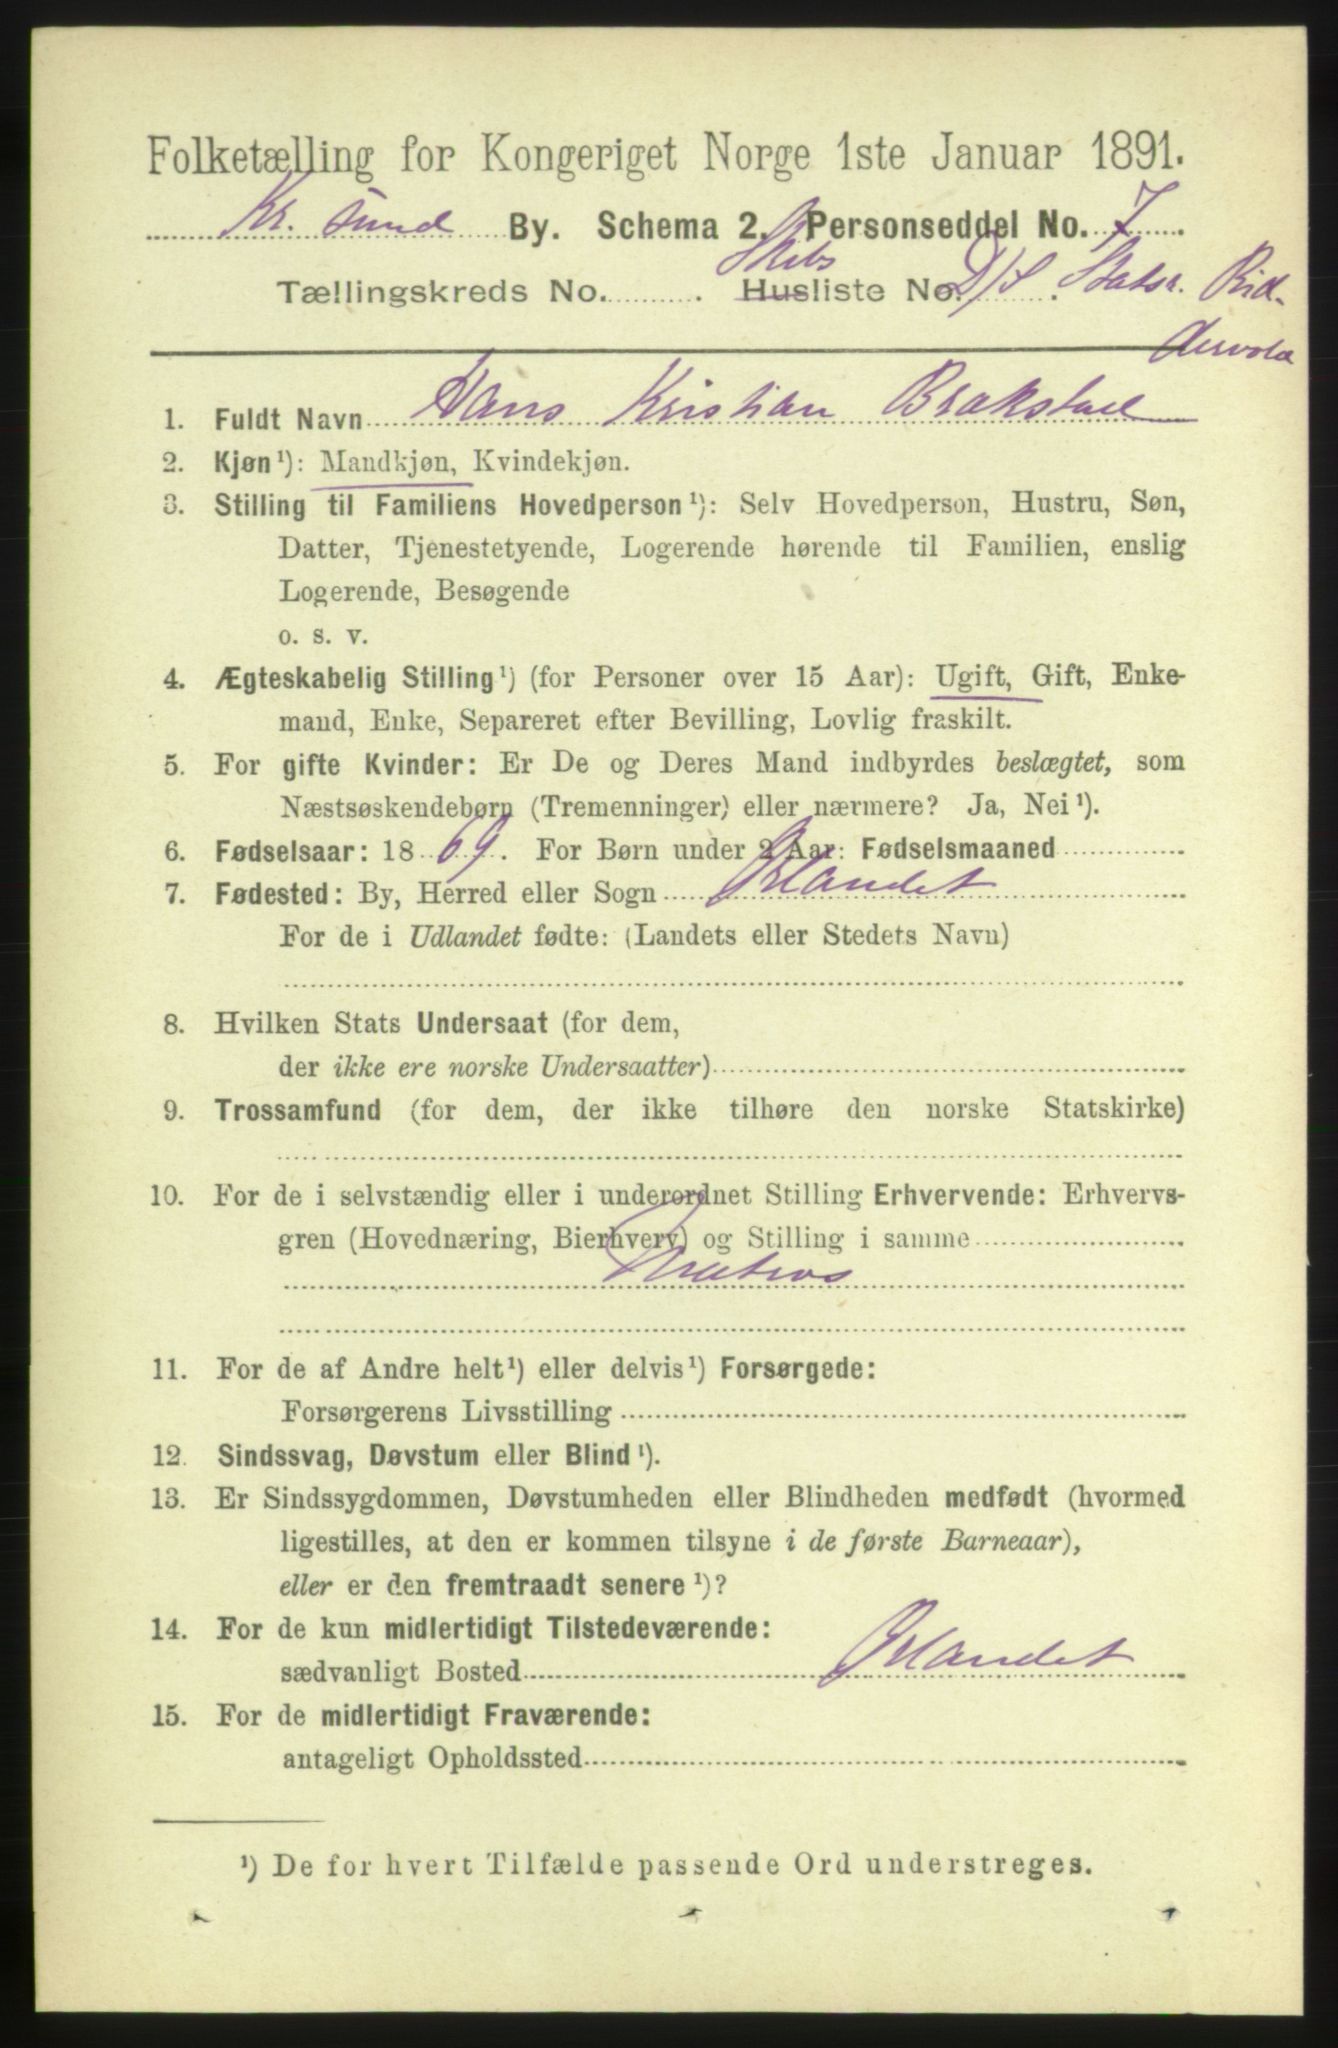 Folketælling for Kongeriget Norge 1ste Januar 1891.
Kr. sund By. Schema 2. Personseddel No. 7
Tællingskreds No. Skibs Husliste No. D/S Statsr. Rid-
dervold
1. Fuldt Navn Hans Kristian Brakstad
2. Kjøn¹): Mandkjøn, Kvindekjøn.
3. Stilling til Familiens Hovedperson¹): Selv Hovedperson, Hustru, Søn,
Datter, Tjenestetyende, Logerende hørende til Familien, enslig
Logerende, Besøgende
o. s. v.
4. Ægteskabelig Stilling¹) (for Personer over 15 Aar): Ugift, Gift, Enke-
mand, Enke, Separeret efter Bevilling, Lovlig fraskilt.
5. For gifte Kvinder: Er De og Deres Mand indbyrdes beslægtet, som
Næstsøskendebørn (Tremenninger) eller nærmere? Ja, Nei¹).
6. Fødselsaar: 1869. For Børn under 2 Aar: Fødselsmaaned
7. Fødested: By, Herred eller Sogn Ørlandet
For de i Udlandet fødte: (Landets eller Stedets Navn)
8. Hvilken Stats Undersaat (for dem,
der ikke ere norske Undersaatter)
9. Trossamfund (for dem, der ikke tilhøre den norske Statskirke)
10. For de i selvstændig eller i underordnet Stilling Erhvervende: Erhvervs-
gren (Hovednæring, Bierhverv) og Stilling i samme
Matros
11. For de af Andre helt¹) eller delvis¹) Forsørgede:
Forsørgerens Livsstilling
12. Sindssvag, Døvstum eller Blind¹).
13. Er Sindssygdommen, Døvstumheden eller Blindheden medfødt (hvormed
ligestilles, at den er kommen tilsyne i de første Barneaar),
eller er den fremtraadt senere¹)?
14. For de kun midlertidigt Tilstedeværende:
sædvanligt Bosted Ørlandet
15. For de midlertidigt Fraværende:
antageligt Opholdssted
¹) De for hvert Tilfælde passende Ord understreges.